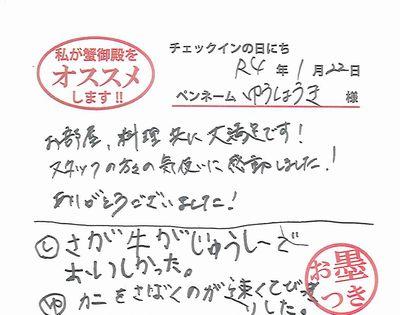 私が蟹御殿を
オススメ
します!!
チェックインの日にち
R4年1月22日
ペンネーム ゆうはうき 様
お部屋、料理共に大満足です!
スタッフの方々の気使いに感動しました!
ありがとうございました!
し さが牛がじゅうしーで
おいしかった。
ゆ カニをさばくのが速くてびっ
くりした。
お墨
つき